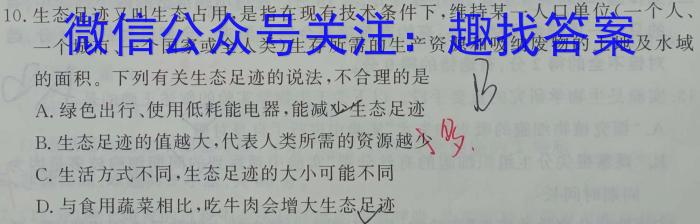 10. 生态足迹又叫生态占用,是指在现有技术条件下,维持某一人口单位(一个人、
微信公众号关注:趣找答案
一个 国家或全人类 生产资 吸纳废物的土地及水域
的面积。下列有关生态足迹的说法,不合理的是
B
A. 绿色出行、使用低耗能电器,能减少生态足迹
B. 生态足迹的值越大,代表人类所需的资源越少
多
C. 生活方式不同,生态足迹的大小可能不同
D. 与食用蔬菜相比,吃牛肉会增大生态足迹